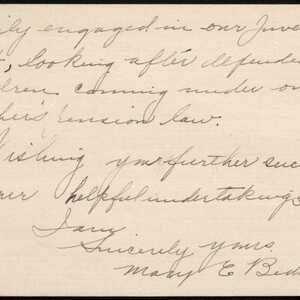 ily engaged in our Juve
t, looking after dependen
dren coming under ou
her's pension law.
Wishing you further suc
our helpful undertakings
I am
Sincerely yours.
Mary E